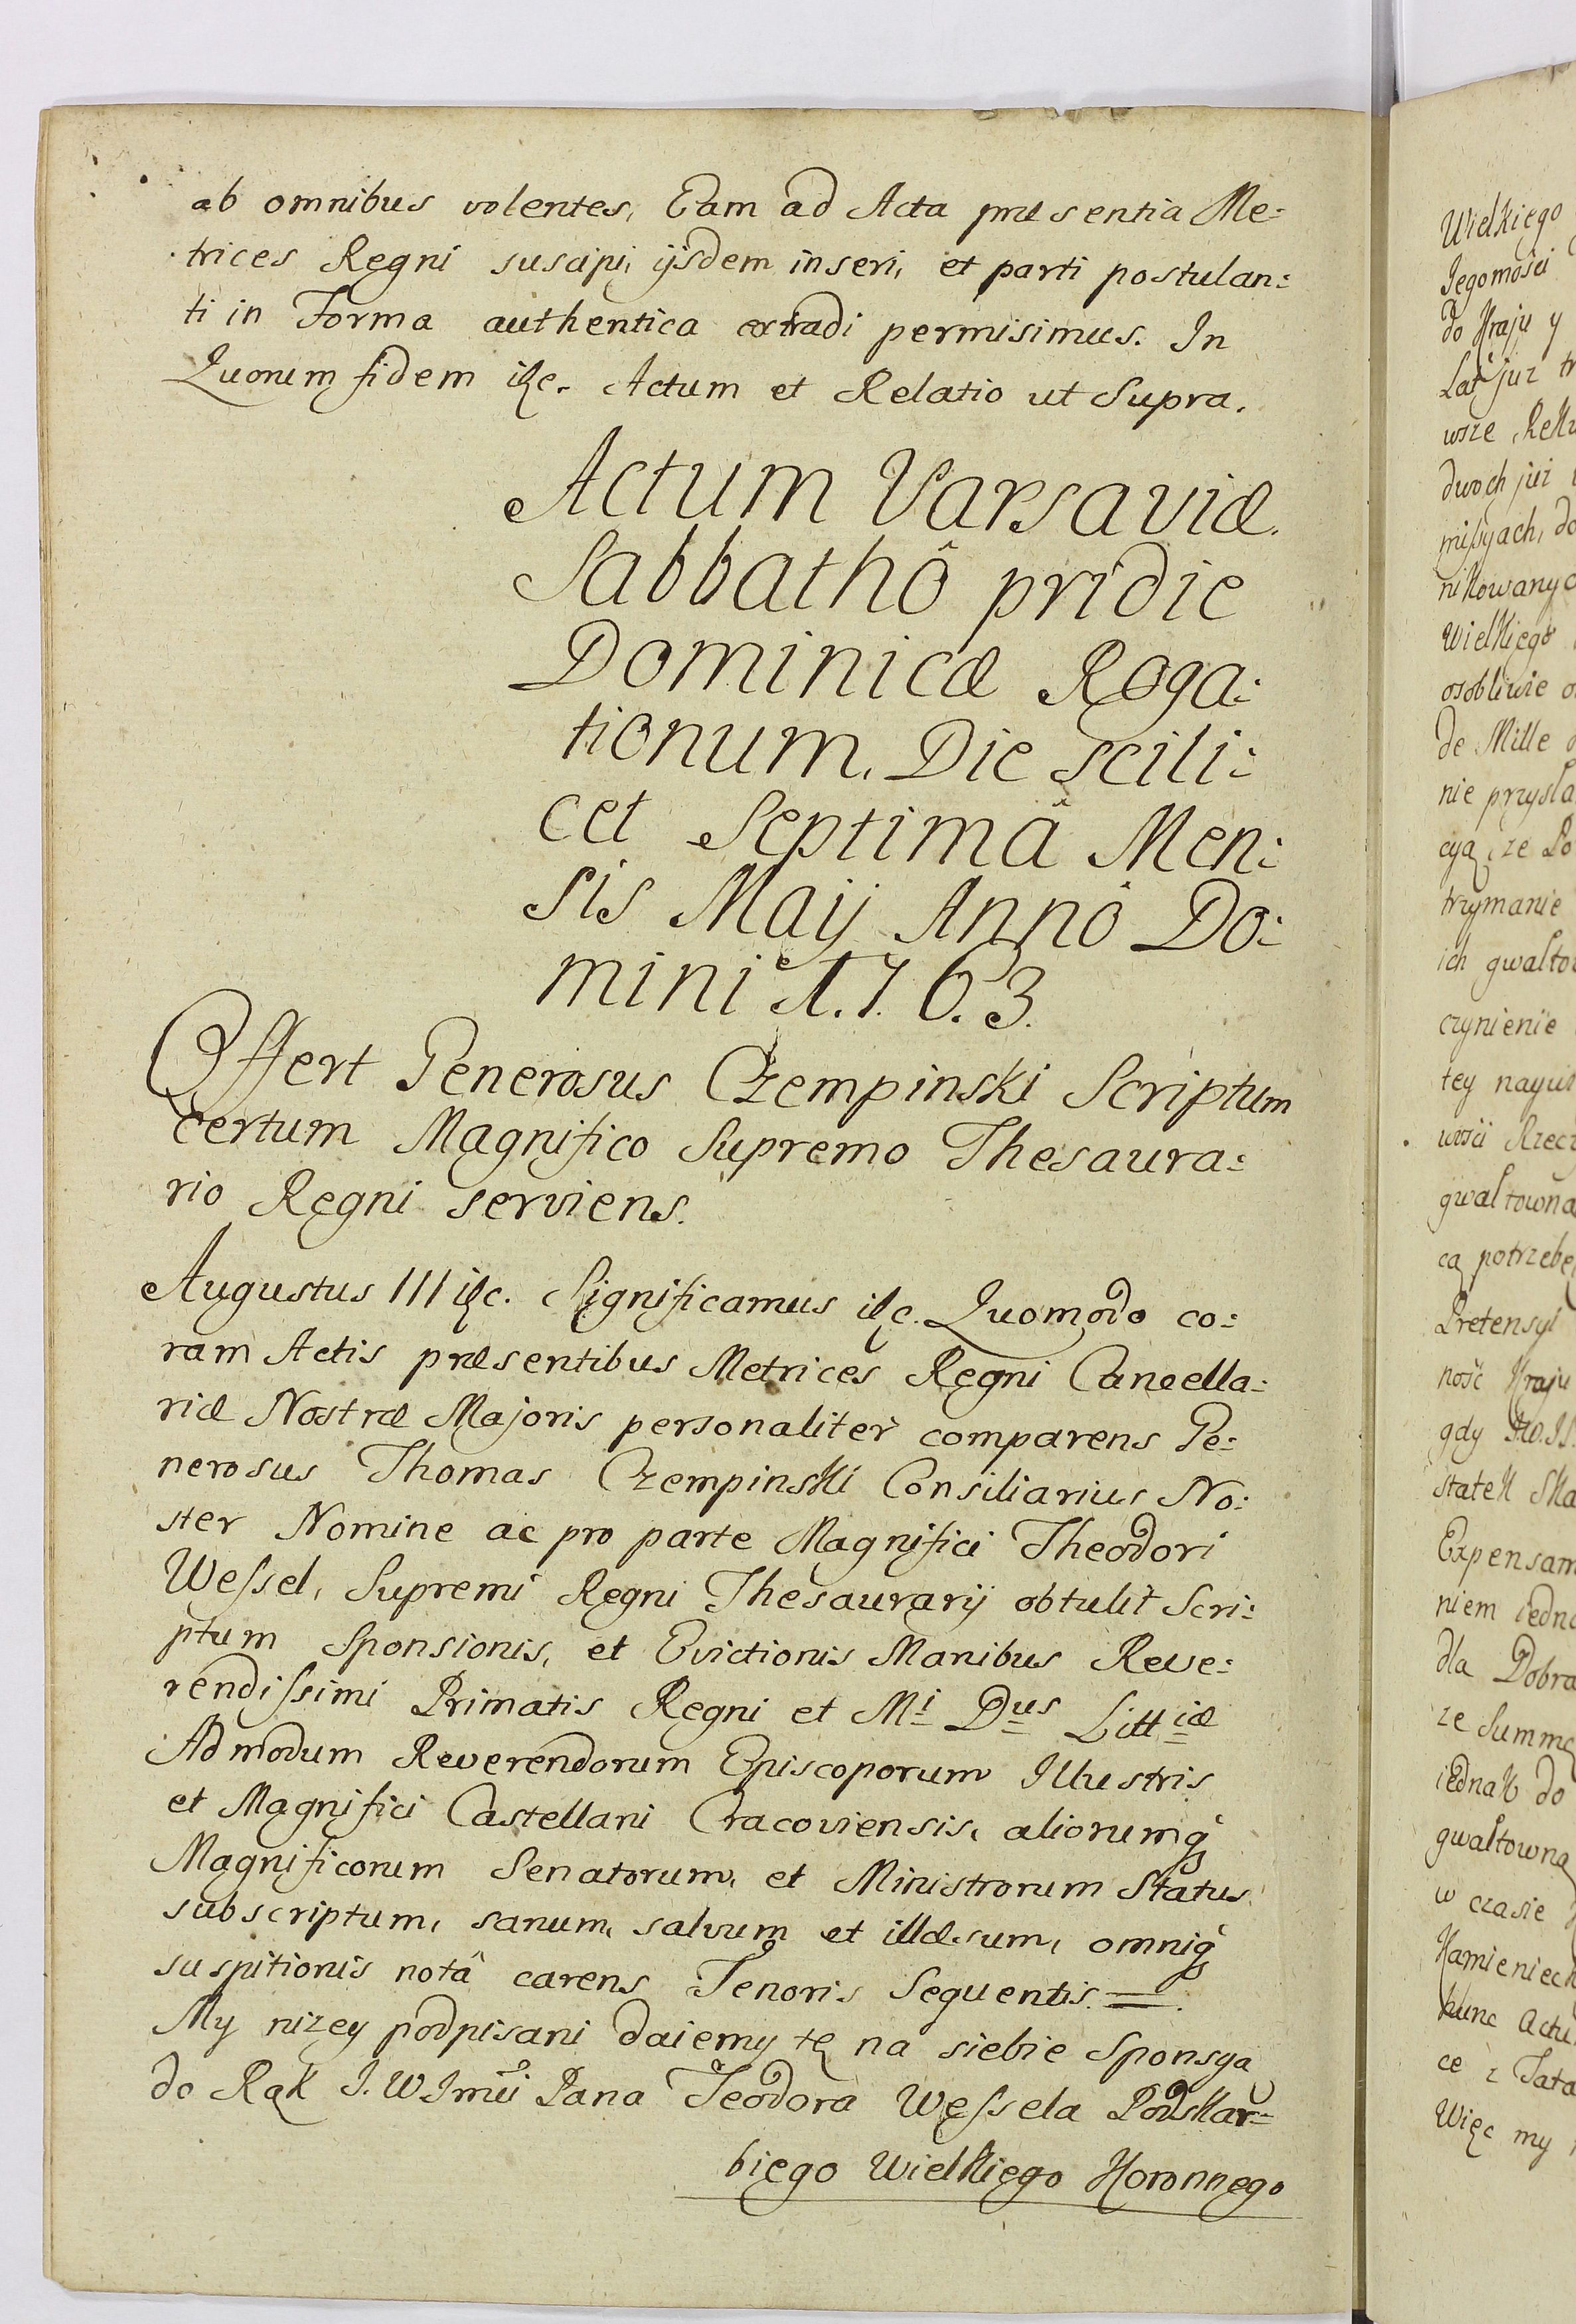 ab omnibus volentes, Eam ad Acta præsentia Me:
trices Regni suscipi, ijsdem inseri, et parti postulan:
ti in Forma authentica extradi permisimus. In
Quorum fidem &c. Actum et Relatio ut Supra.
Actum Varsaviæ.
Sabbathô pridie
Dominicæ Roga:
tionum. Die scili:
cet Septimâ Men:
sis Maij Annô Do:
mini 1.7.6.3.
Offert Generosus Czempinski Scriptum
certum Magnifico Supremo Thesaura:
rio Regni serviens.
Augustus III &c. Significamus &c. Quomodo co:
ram Actis præsentibus Metrices Regni Cancella:
riæ Nostræ Majoris personaliter comparens Ge:
nerosus Thomas Czempinski Consiliarius No:
ster Nomine ac pro parte Magnifici Theodori
Weſsel, Supremi Regni Thesaurarij obtulit Scri:
ptum Sponsionis, et Evictionis Manibus Reve:
rendiſsimi Primatis Regni et Mi Dus Littiæ
Admodum Reverendorum Episcoporum Illustris
et Magnifici Castellani Cracoviensis, aliorumq́
Magnificorum Senatorum, et Ministrorum Status
subscriptum, sanum, salvum et illæsum, omniq́
suspitionis notâ carens Tenoris Sequentis. =
My nizey podpisani daiemy tę na siebie Sponsyą
do Rąk J. W Jmci Pana Teodora Weſsela Podskar=
biego Wielkiego Koronnego
Wielkiego
Jegomości
do Kraju y
Lat juz
wsze
dwoch już
miſsyach, do
Wielkiego
osobliwie
de Mille
nie
cyą, ze
trzymanie
ich
czynienie
tey
gwaltowna
cą potrzebę
Pretensyi
ność Kraju
gdy
Expensam
niem
dla Dobra
ze Summę
iednak do
gwałtowną
w czasie
ce z
Więc my